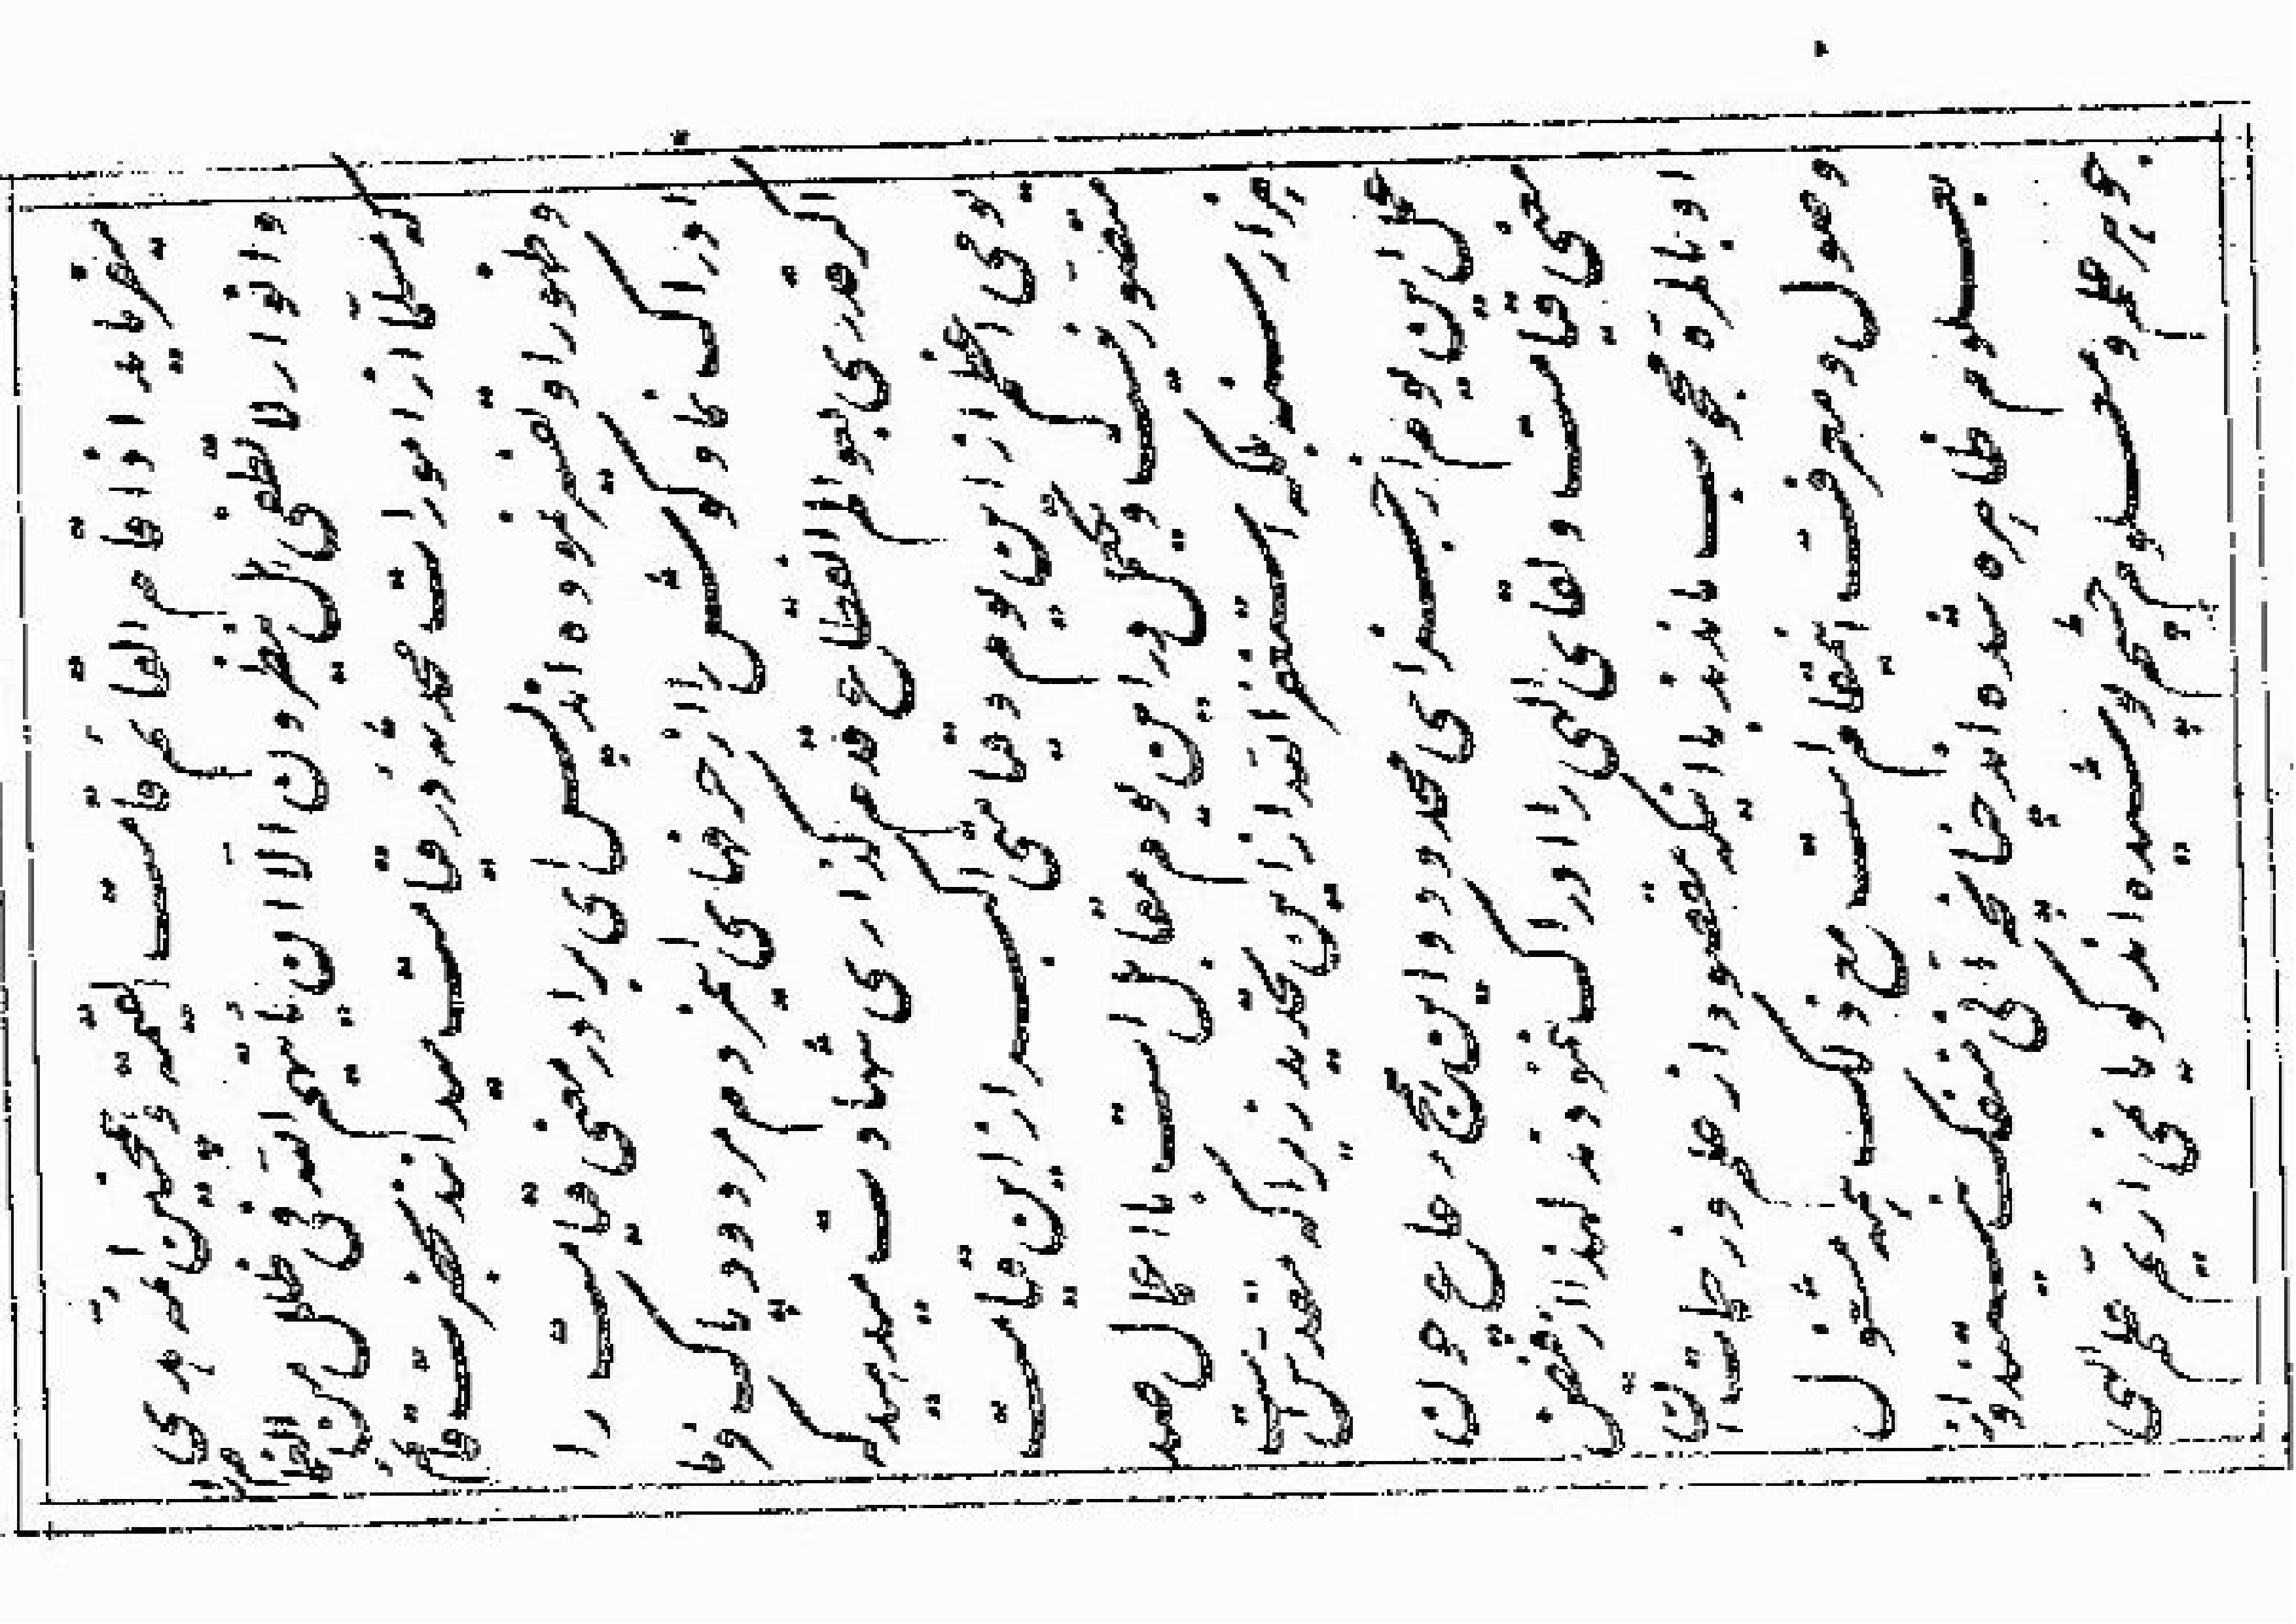 میفرماید اذا قام القائم قامت القیمة و همچنین ائمه هدی
و انوار لا تطفی هل ینظرون الا ان یأتیهم الله فی ظلل من الغمام را
که مسلماً از امورات محدثه در قیامت میدانند بحضرت قائم
و ظهور او تفسیر نموده‌اند پس ای برادر معنی قیامت را
ادراک نما و گوش را از حرفهای این مردم مردود پاک فرما
اگر قدری بعوالم انقطاع قدم گذاری شهادت میدهید که
یومی اعظم از این یوم و قیامتی اکبر از این قیامت
متصور نیست و یک عمل در این یوم مقابل است با اعمال صد
هزار سنه بلکه استغفر الله از این تحدید زیرا که مقدس است
عمل این یوم از جزای محدود و این همج رعاع چون
معنی قیامت و لقای الهی را ادراک ننمودند لهذا از فیض
او بالمره محجوب ماندند با اینکه مقصود از علم و زحمات آن
وصول و معرفت این مقام است مع ذلک همه مشغول
بعلوم ظاهره شده‌اند چنانچه آنی منفک نیستند و از
جوهر علم و معلوم چشم پوشیده‌اند گویا نمی از یم علم الهی